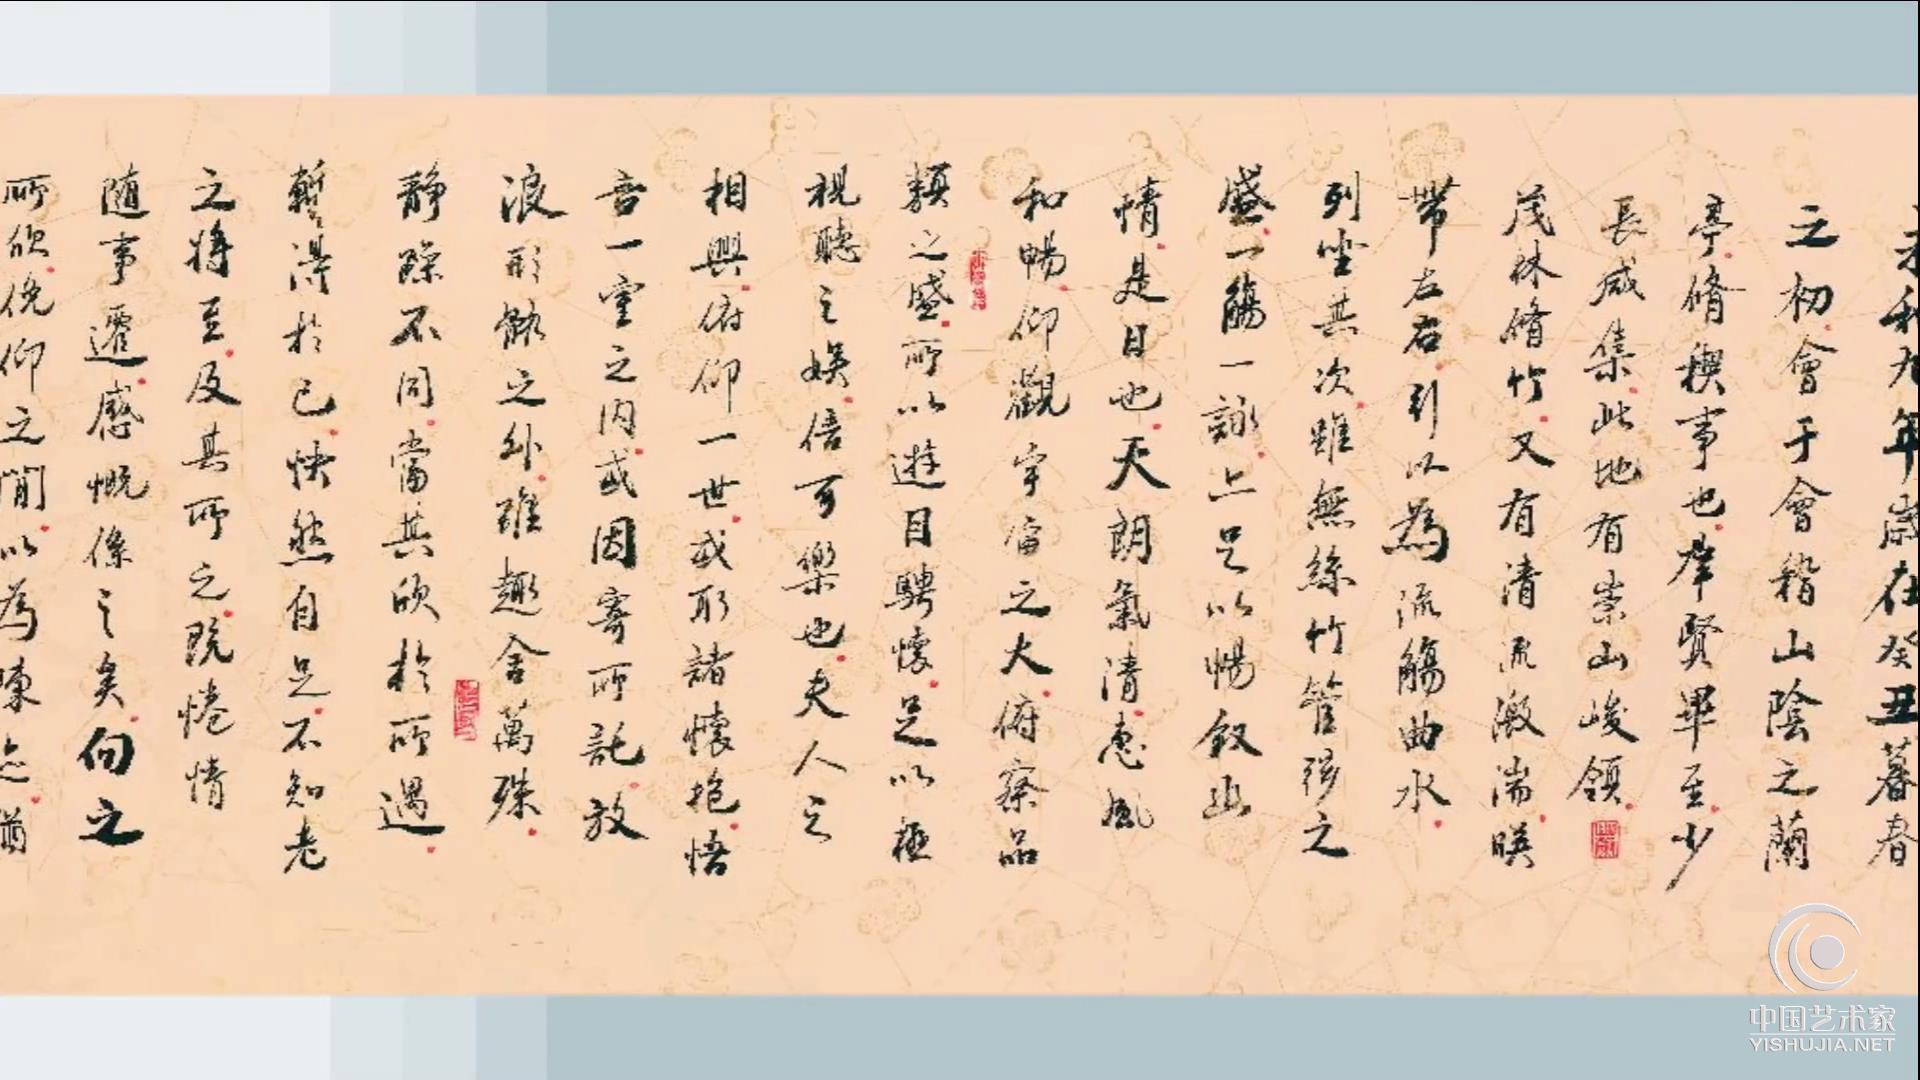 永和九年歲在癸丑暮春
之初會于會稽山陰之蘭
亭脩稧事也羣賢畢至少
長咸集此地有崇山峻領
茂林脩竹又有清流激湍暎
帶左右引以為流觴曲水
列坐其次雖無絲竹管弦之
盛一觴一詠亦足以暢叙幽
情是日也天朗氣清惠風
和暢仰觀宇宙之大俯察品
類之盛所以遊目騁懷足以極
視聽之娛信可樂也夫人之
相與俯仰一世或取諸懷抱悟
言一室之內或因寄所託放
浪形骸之外雖趣舍萬殊
靜躁不同當其欣於所遇
暫得於己快然自足不知老
之將至及其所之既惓情
隨事遷感慨係之矣向之
所欣俛仰之間以為陳迹猶
中国艺术家
YISHUJIA.NET